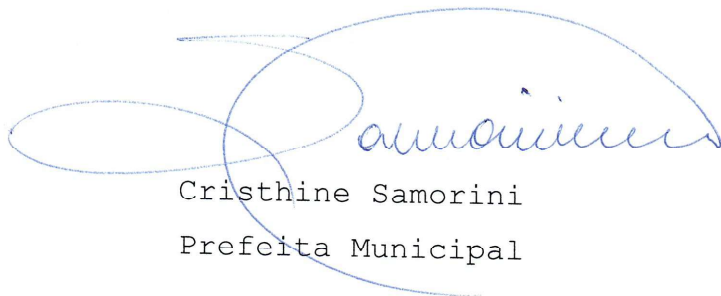 Cristhine Samorini
Prefeita Municipal